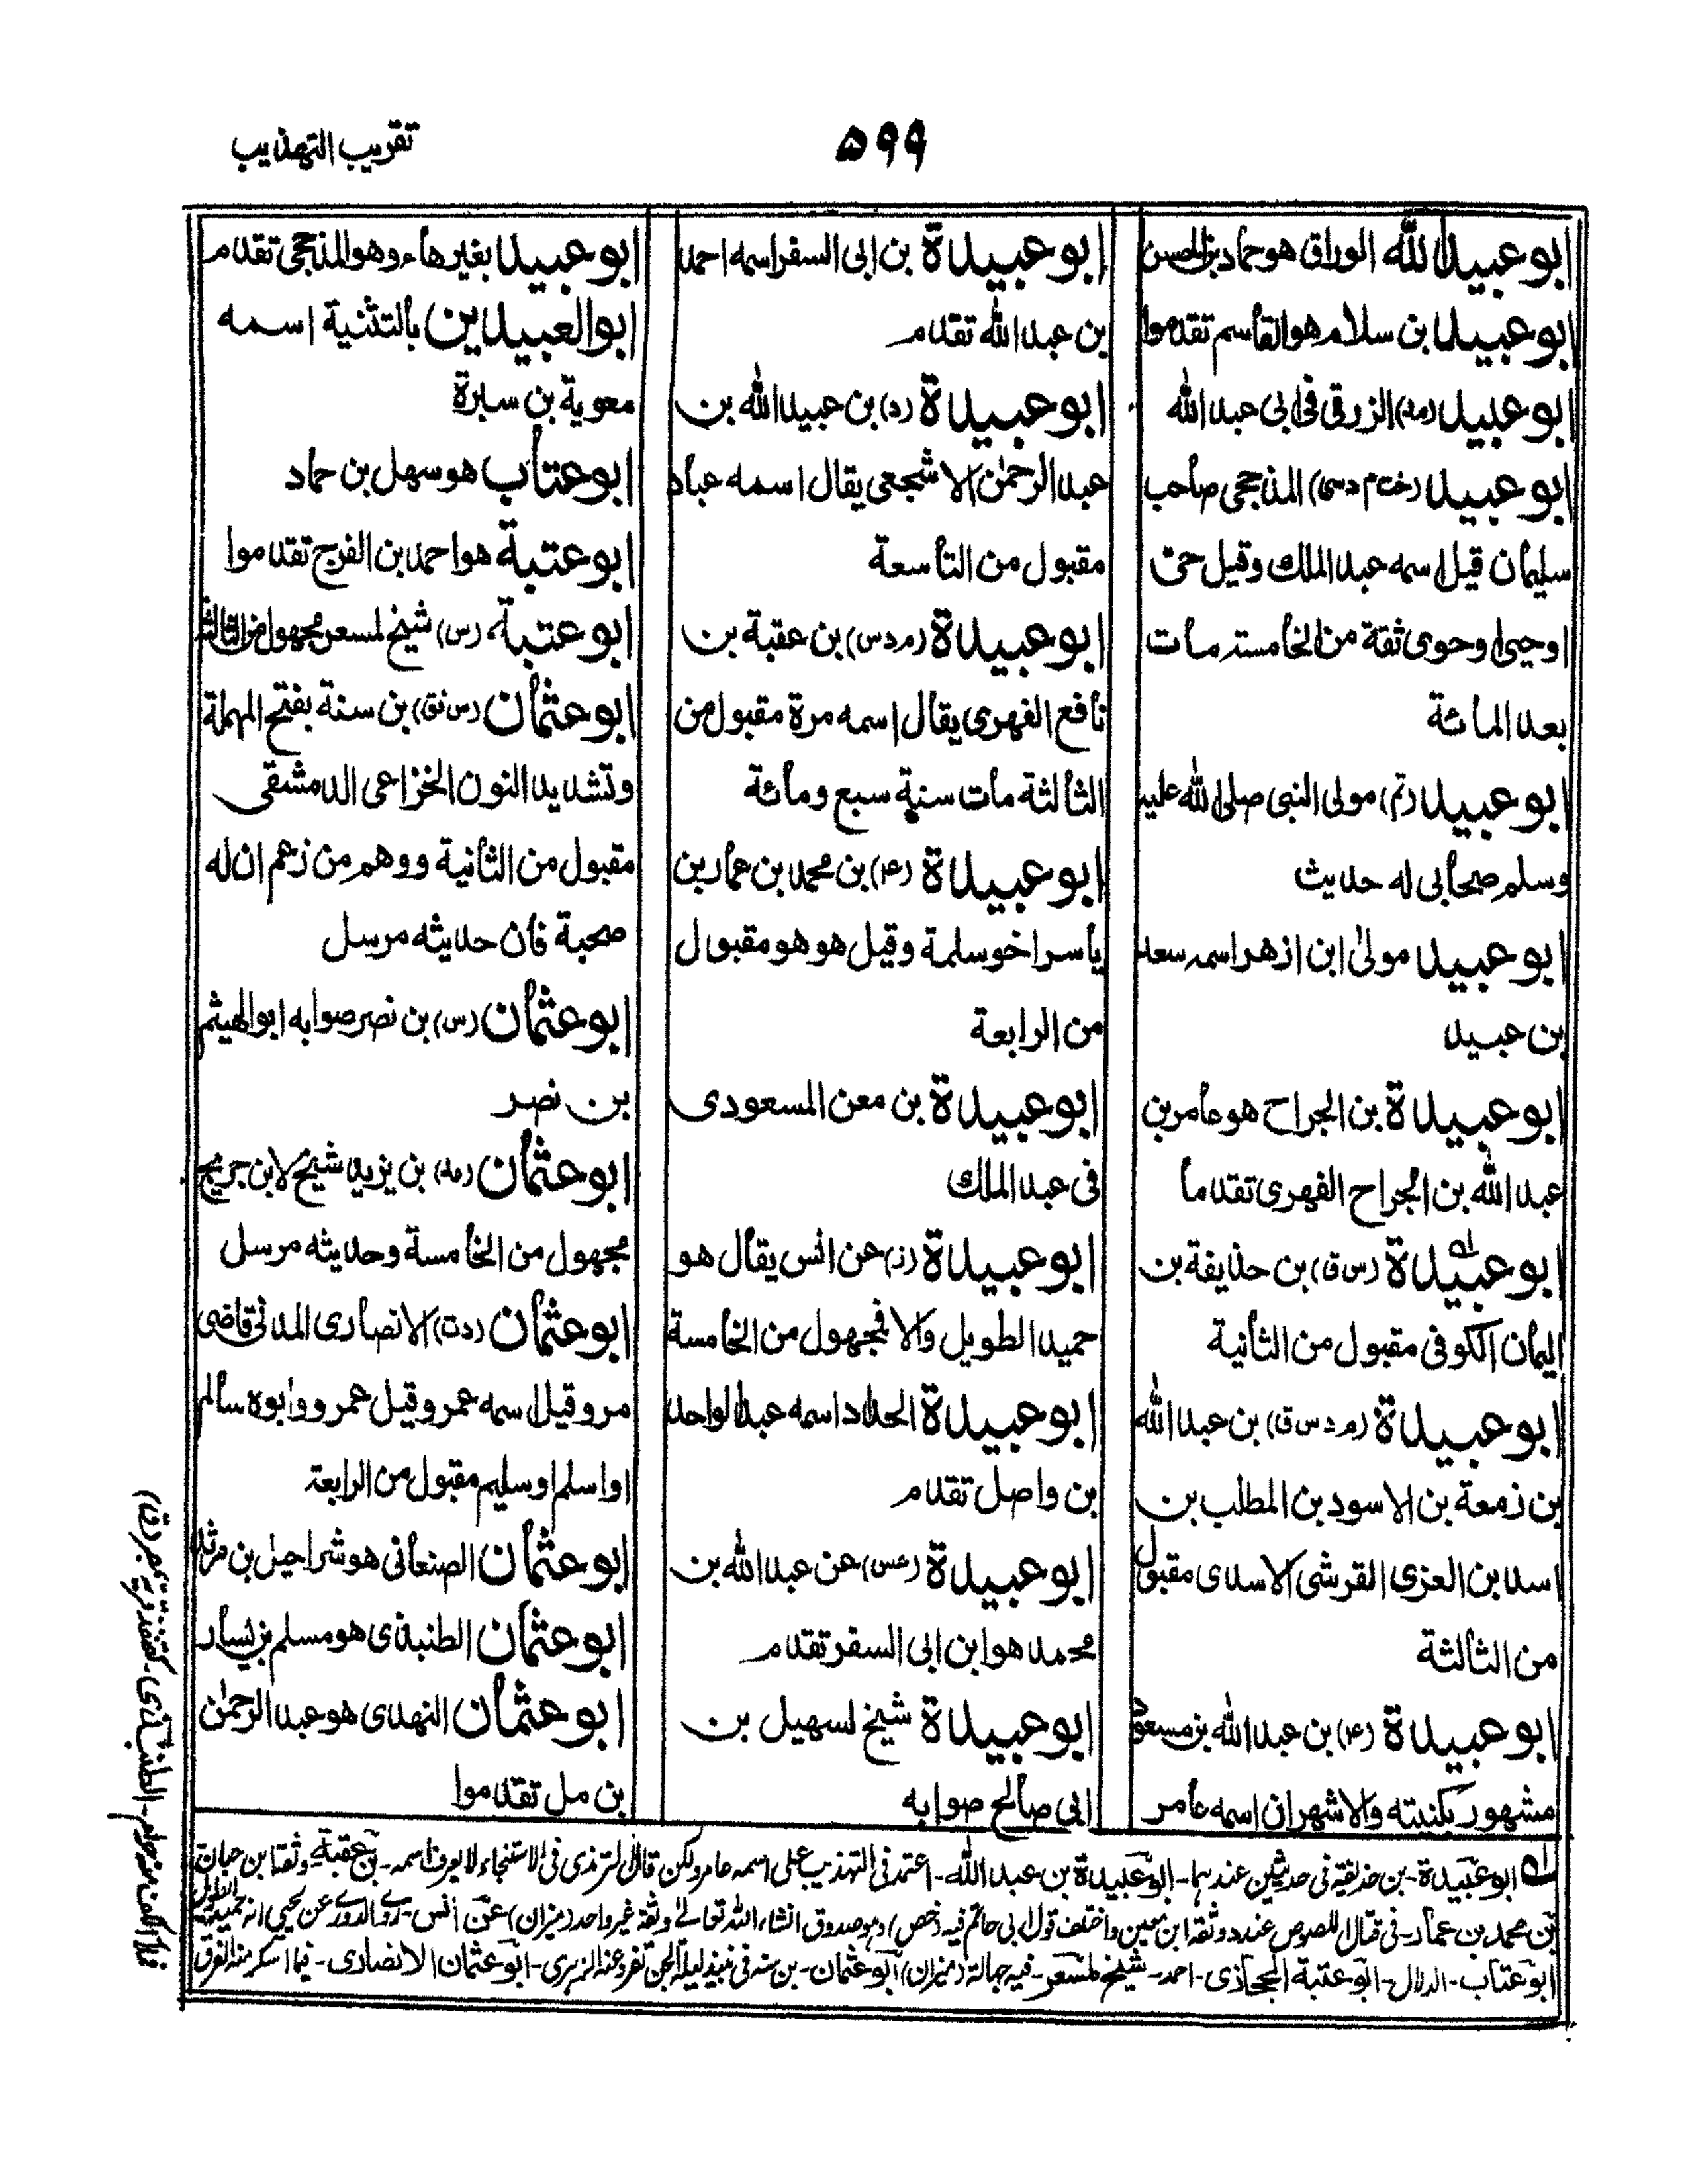 تقريب التهذيب
۵۹۹
ابو عبيد الله الوراق هو حماد بن الحسن
ابو عبيد بن سلام هو القاسم تقدموا
ابو عبيد (مد) الزرقى فى ابى عبد الله
ابو عبيد (خت م د سى) المذحجى صاحب
سليمان قيل اسمه عبد الملك وقيل حى
او حيى او حوى ثقة من الخامسة مات
بعد المائة
ابو عبيد (تم) مولى النبى صلى الله عليه
وسلم صحابى له حديث
ابو عبيد مولى ابن ازهر اسمه سعد
بن عبيد
ابو عبيدة بن الجراح هو عامر بن
عبد الله بن الجراح الفهرى تقدما
ابو عبيدة (س ق) بن حذيفة بن
اليمان الكوفى مقبول من الثانية
ابو عبيدة (م د س ق) بن عبد الله
بن زمعة بن الاسود بن المطلب بن
اسد بن العزى القرشى الاسدى مقبول
من الثالثة
ابو عبيدة (ع) بن عبد الله بن مسعود
مشهور بكنيته والاشهر ان اسمه عامر
ابو عبيدة بن ابى السفر اسمه احمد
بن عبد الله تقدم
ابو عبيدة (د) بن عبيد الله بن
عبد الرحمن الاشجعى يقال اسمه عباد
مقبول من التاسعة
ابو عبيدة (م د س) بن عقبة بن
نافع الفهرى يقال اسمه مرة مقبول من
الثالثة مات سنة سبع ومائة
ابو عبيدة (ع) بن محمد بن عمار بن
ياسر اخو سلمة وقيل هو هو مقبول
من الرابعة
ابو عبيدة بن معن المسعودى
فى عبد الملك
ابو عبيدة (ز) عن انس يقال هو
حميد الطويل والا فمجهول من الخامسة
ابو عبيدة الحداد اسمه عبد الواحد
بن واصل تقدم
ابو عبيدة (عس) عن عبد الله بن
محمد هو ابن ابى السفر تقدم
ابو عبيدة شيخ لسهيل بن
ابى صالح صوابه
ابو عبيد بغير هاء وهو المذحجى تقدم
ابو العبيدين بالتثنية اسمه
معوية بن سبرة
ابو عتاب هو سهل بن حماد
ابو عتبة هو احمد بن الفرج تقدموا
ابو عتبة (س) شيخ لمسعر مجهول من الثالثة
ابو عثمان (س فق) بن سنة بفتح المهملة
وتشديد النون الخزاعى الدمشقى
مقبول من الثانية ووهم من زعم ان له
صحبة فان حديثه مرسل
ابو عثمان (س) بن نصر صوابه ابو الهيثم
بن نصر
ابو عثمان (مد) بن يزيد شيخ لابن جريج
مجهول من الخامسة وحديثه مرسل
ابو عثمان (د ت) الانصارى المدنى قاضى
مرو قيل اسمه عمرو وقيل عمر وابوه سالم
او اسلم او سليم مقبول من الرابعة
ابو عثمان الصنعانى هو شراحيل بن مرثد
ابو عثمان الطنبذى هو مسلم بن يسار
ابو عثمان النهدى هو عبد الرحمن
بن مل تقدموا
له ابو عبيدة- بن حذيفة فى حديثين عندهما- ابو عبيدة بن عبد الله- اعتمد فى التهذيب على اسمه عامر ولكن قال الترمذى فى الاستنجاء لا يعرف اسمه- بن عقبة وثقه ابن حبان
بن محمد بن عمار- فى قتال اللصوص عند د وثقه ابن معين واختلف قول ابى حاتم فيه (خص) وهو صدوق انشاء الله تعالى وثقه غير واحد (ميزان) عن انس- روى الدورى عن يحيى انه حميد الطويل
ابو عتاب- الدلال- ابو عتبة الحجازى- احمد- شيخ لمسعر- فيه جهالة (ميزان) ابو عثمان- بن سنة فى نبيذ ليلة الجن تفرد عنه الزهرى- ابو عثمان الانصارى- فيما اسكر منه الفرق
فملأ الكف منه حرام- الطنبذى-